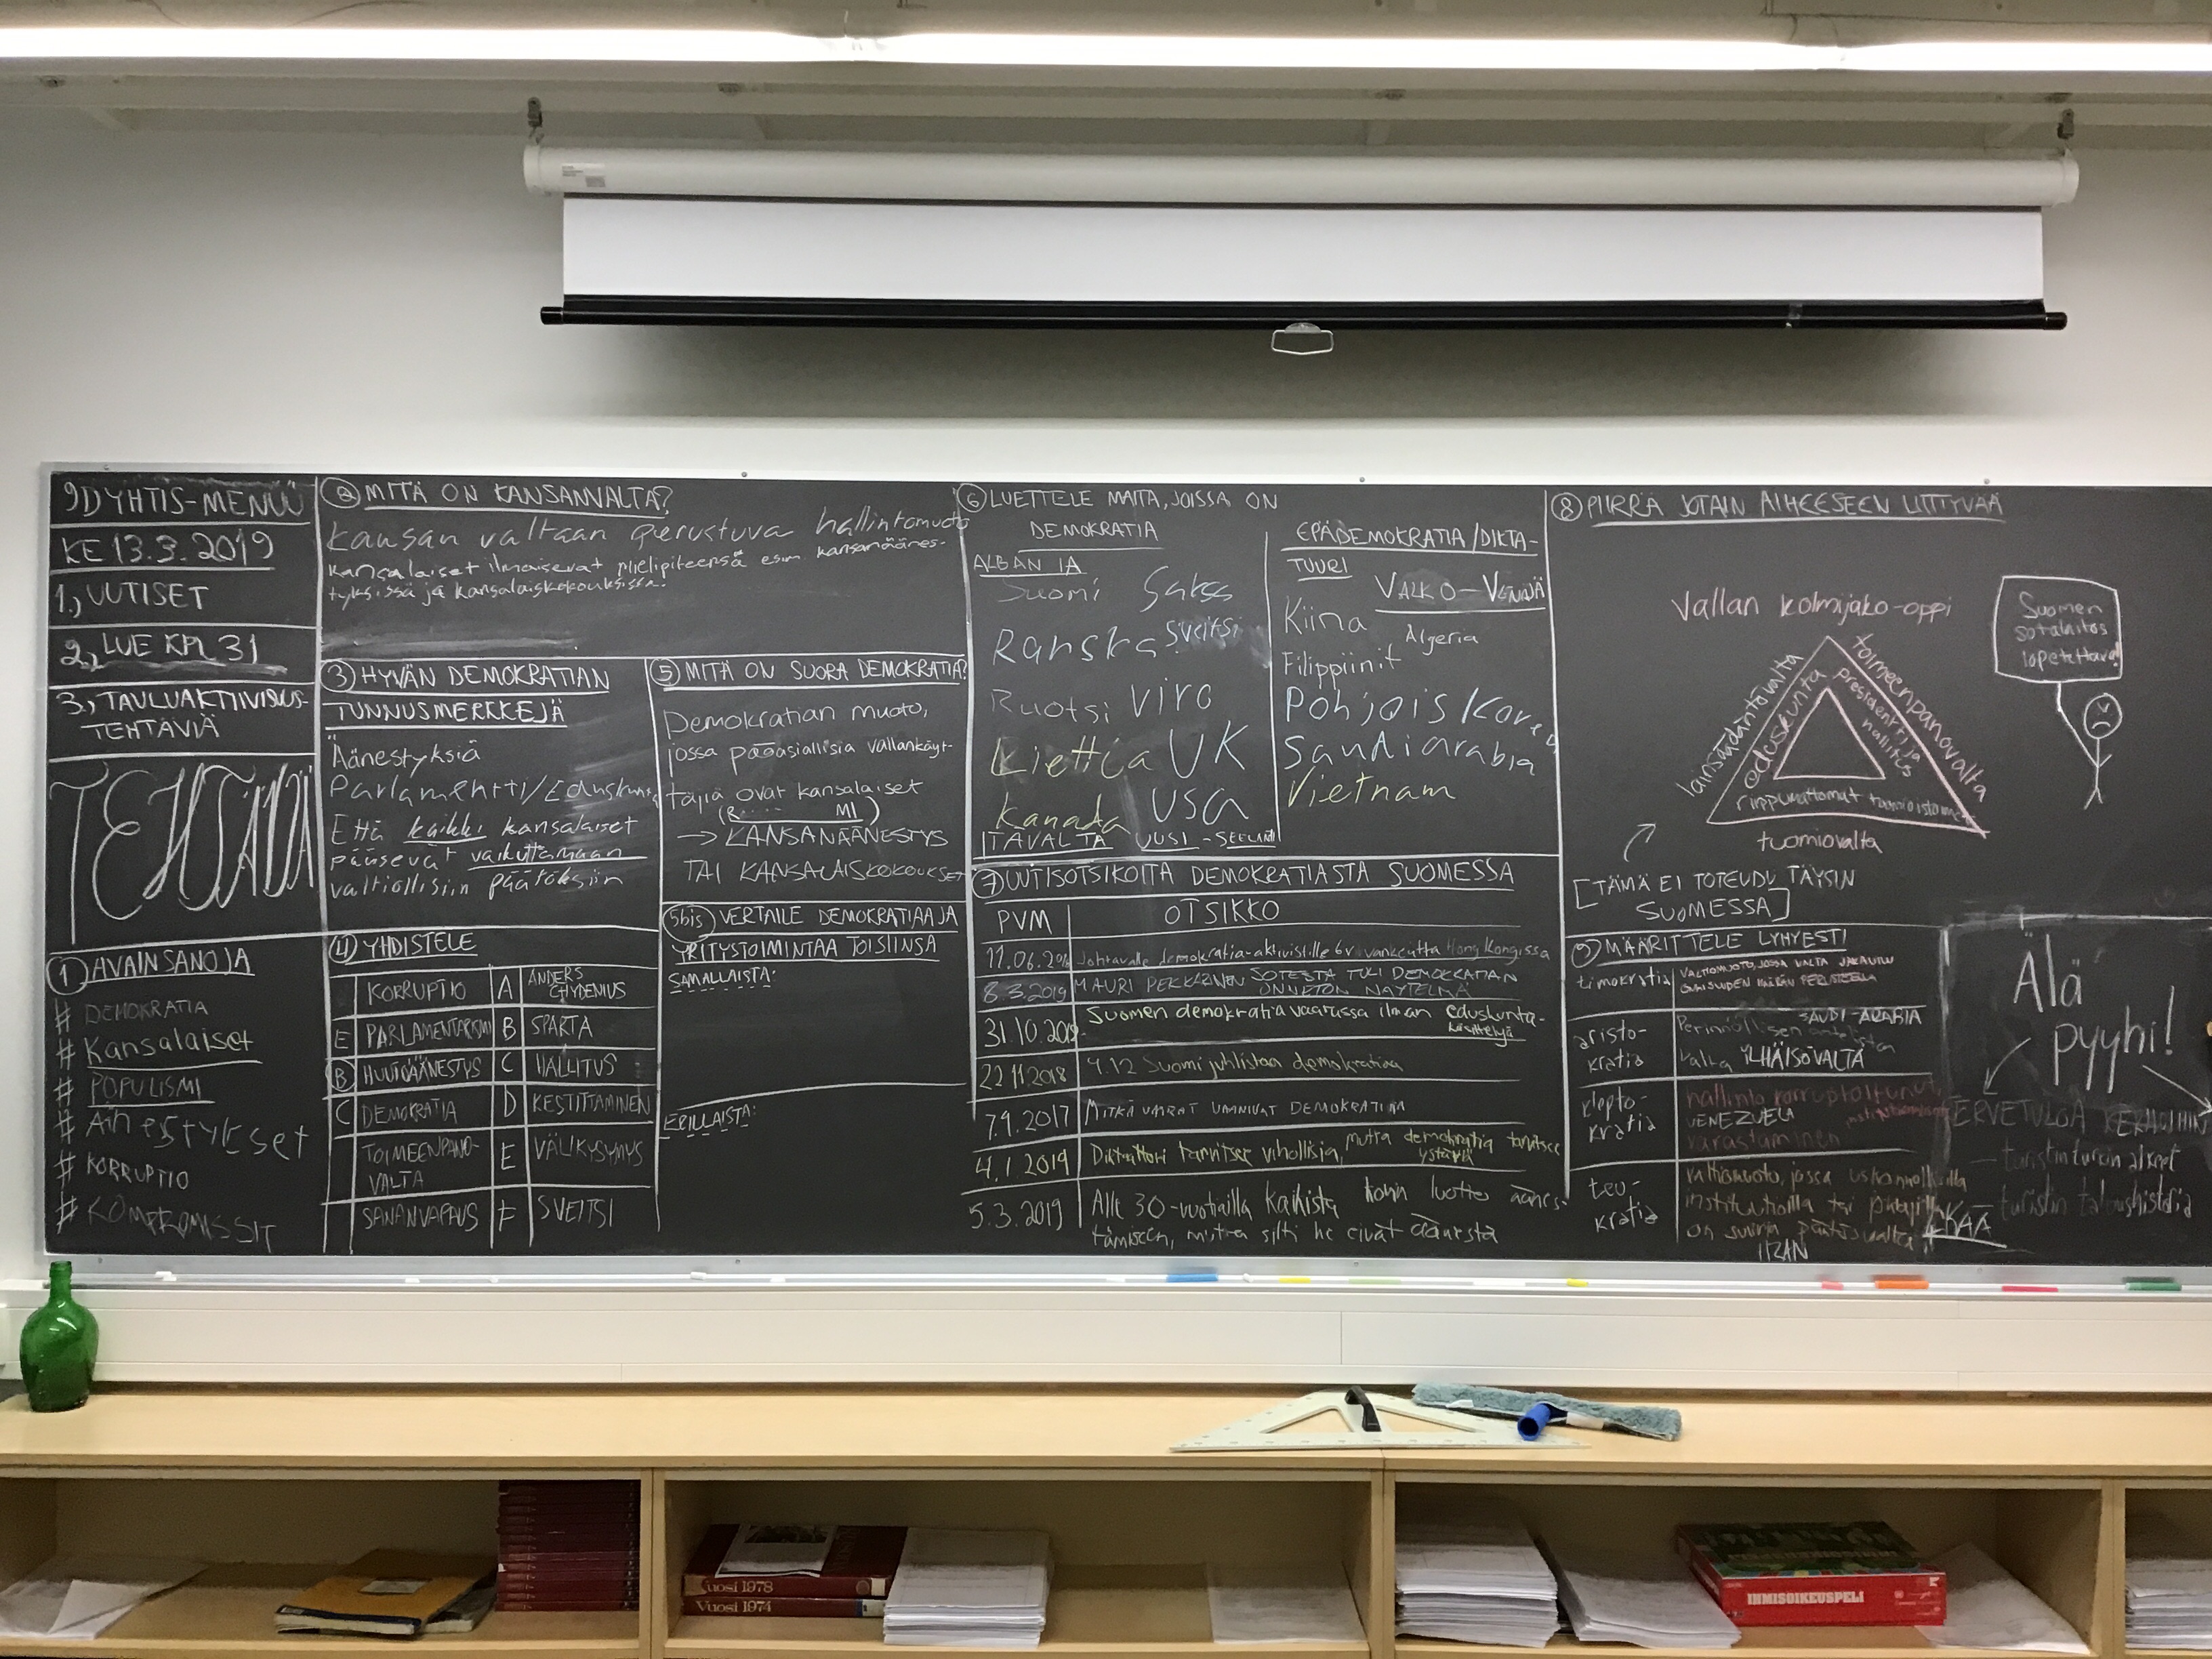 9D YHTIS-MENÜÜ
KE 13.3.2019
1., UUTISET
2., LUE KPL 31
3., TAULUAKTIIVISUUS-
TEHTÄVIÄ
TEHTÄVIÄ
① AVAINSANOJA
# DEMOKRATIA
# Kansalaiset
# POPULISMI
# Äänestykset
# KORRUPTIO
# KOMPROMISSIT
② MITÄ ON KANSANVALTA?
Kansan valtaan perustuva hallintomuoto
Kansalaiset ilmaisevat mielipiteensä esim kansanäänes-
tyksissä ja kansalaiskokouksissa.
③ HYVÄN DEMOKRATIAN
TUNNUSMERKKEJÄ
Äänestyksiä
Parlamentti/Eduskunta
Että kaikki kansalaiset
pääsevät vaikuttamaan
valtiollisiin päätöksiin
④ YHDISTELE
KORRUPTIO A ANDERS CHYDENIUS
E PARLAMENTARISMI B SPARTA
B HUUTOÄÄNESTYS C HALLITUS
C DEMOKRATIA D KESTITTÄMINEN
TOIMEENPANO-
VALTA E VÄLIKYSYMYS
SANANVAPAUS F SVEITSI
⑤ MITÄ ON SUORA DEMOKRATIA?
Demokratian muoto,
jossa pääasiallisia vallankäyt-
täjiä ovat kansalaiset
(R..... MI)
→ KANSANÄÄNESTYS
TAI KANSALAISKOKOUKSET
5bis VERTAILE DEMOKRATIAA JA
YRITYSTOIMINTAA TOISIINSA
SAMALLAISTA:
ERILLAISTA:
⑥ LUETTELE MAITA, JOISSA ON
DEMOKRATIA
ALBANIA
Suomi Saksa
Ranska Sveitsi
Ruotsi Viro
UK
Kanada USA
ITÄVALTA UUSI-SEELANTI
EPÄDEMOKRATIA/DIKTA-
TUURI
VALKO-VENÄJÄ
Kiina
Algeria
Filippiinit
Pohjois Korea
Saudi arabia
Vietnam
⑦ UUTISOTSIKOITA DEMOKRATIASTA SUOMESSA
PVM OTSIKKO
11.06. Johtavalle demokratia-aktivistille 6v vankeutta Hong Kongissa
8.3.2019 MAURI PEKKARINEN SOTESTA TULI DEMOKRATIAN
ONNETON NÄYTELMÄ
31.10. Suomen demokratia vaarassa ilman eduskunta-
käsittelyä
22.11.2018 4.12 Suomi juhlistaa demokratiaa
7.9.2017 MITKÄ VAARAT UHKAAVAT DEMOKRATIAA
4.1.2019 Diktaattori tarvitsee vihollisia, mutta demokratia tarvitsee
ystäviä
5.3.2019 Alle 30-vuotiailla kaikista kovin luotto äänes-
tämiseen, mutta silti he eivät äänestä
⑧ PIIRRÄ JOTAIN AIHEESEEN LIITTYVÄÄ
Vallan kolmijako-oppi
lainsäädäntövalta
eduskunta
toimeenpanovalta
presidentti ja
hallitus
riippumattomat tuomioistuimet
tuomiovalta
[TÄMÄ EI TOTEUDU TÄYSIN
SUOMESSA]
Suomen
sotalaitos
lopetettava!
⑨ MÄÄRITTELE LYHYESTI
timokratia VALTIOMUOTO, JOSSA VALTA JAKAUTUU
OMAISUUDEN MÄÄRÄN PERUSTEELLA
SAUDI-ARABIA
aristo-
kratia Perinnöllisen
valta YLHÄISÖVALTA
klepto-
kratia hallinto korruptoitunut
VENEZUELA
varastaminen
teo-
kratia valtiomuoto, jossa uskonnollisilla
instituutioilla tai papeilla
on suurin päätösvalta
IRAN
Älä
pyyhi!
TERVETULOA KERHOIHIN
turistin turcin alkeet
turistin taloushistoria
Vuosi 1978
Vuosi 1974
IHMISOIKEUSPELI